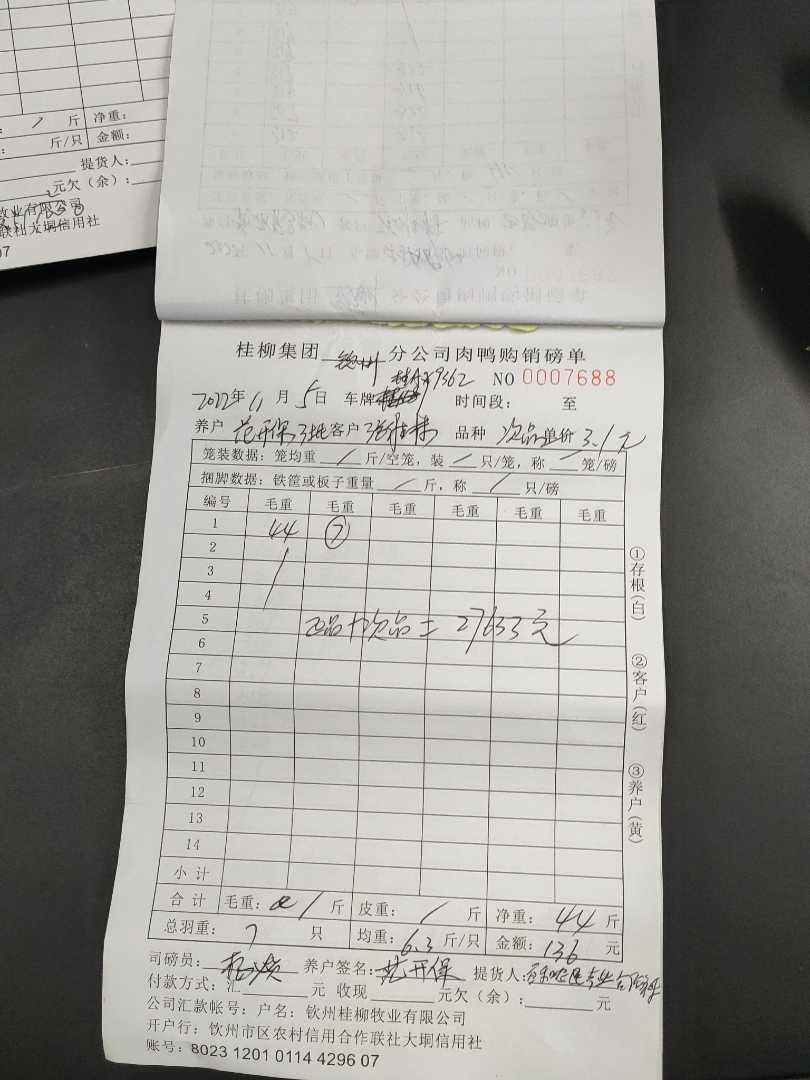 斤 净重:
斤/只 金额:
提货人:
元欠(余):
牧业有限公司
联社大垌信用社
07
桂柳集团 钦州 分公司肉鸭购销磅单
NO 0007688
2022年 11 月 5 日 车牌 9362 时间段: 至
养户 范开保3批 客户 品种 次品 单价 3.1元
笼装数据: 笼均重 / 斤/空笼, 装 / 只/笼, 称 / 笼/磅
捆脚数据: 铁筐或板子重量 / 斤, 称 / 只/磅
编号 毛重 毛重 毛重 毛重 毛重 毛重
1 44 ⑦
2
3
4
5 正品+次品=27633元
6
7
8
9
10
11
12
13
14
小计
合计 毛重: / 斤 皮重: / 斤 净重: 44 斤
总羽重: 7 只 均重: 6.3 斤/只 金额: 136 元
司磅员: 养户签名: 范开保 提货人:
付款方式: 汇 元 收现 元欠(余): 元
公司汇款帐号: 户名: 钦州桂柳牧业有限公司
开户行: 钦州市区农村信用合作联社大垌信用社
账号: 8023 1201 0114 4296 07
①存根(白)
②客户(红)
③养户(黄)